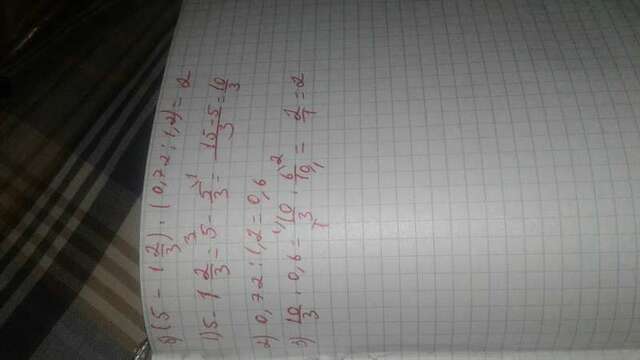 б) (5 - 1 2/3) · (0,72 : 1,2) = 2
1) 5 - 1 2/3 = 5 - 5/3 = (15-5)/3 = 10/3
2) 0,72 : 1,2 = 0,6
3) 10/3 · 0,6 = 10/3 · 6/10 = 2/1 = 2